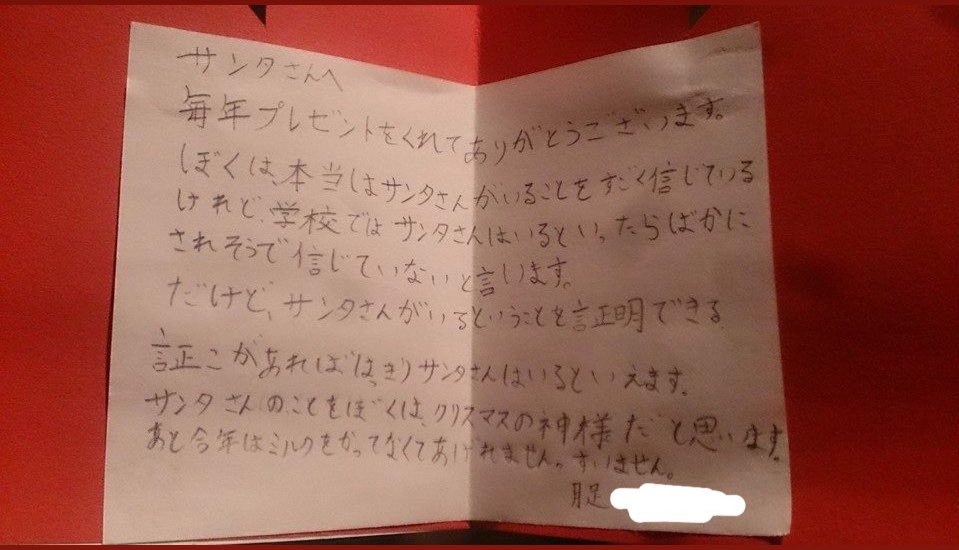 サンタさんへ
毎年プレゼントをくれてありがとうございます。
ぼくは、本当はサンタさんがいることをすごく信じている
けれど、学校ではサンタさんはいるといったらばかに
されそうで信じていないと言います。
だけど、サンタさんがいるということを証明できる
証こがあればはっきりサンタさんはいるといえます。
サンタさんのことをぼくは、クリスマスの神様だと思います。
あと今年はミルクをかってなくてあげれません。すいません。
月足